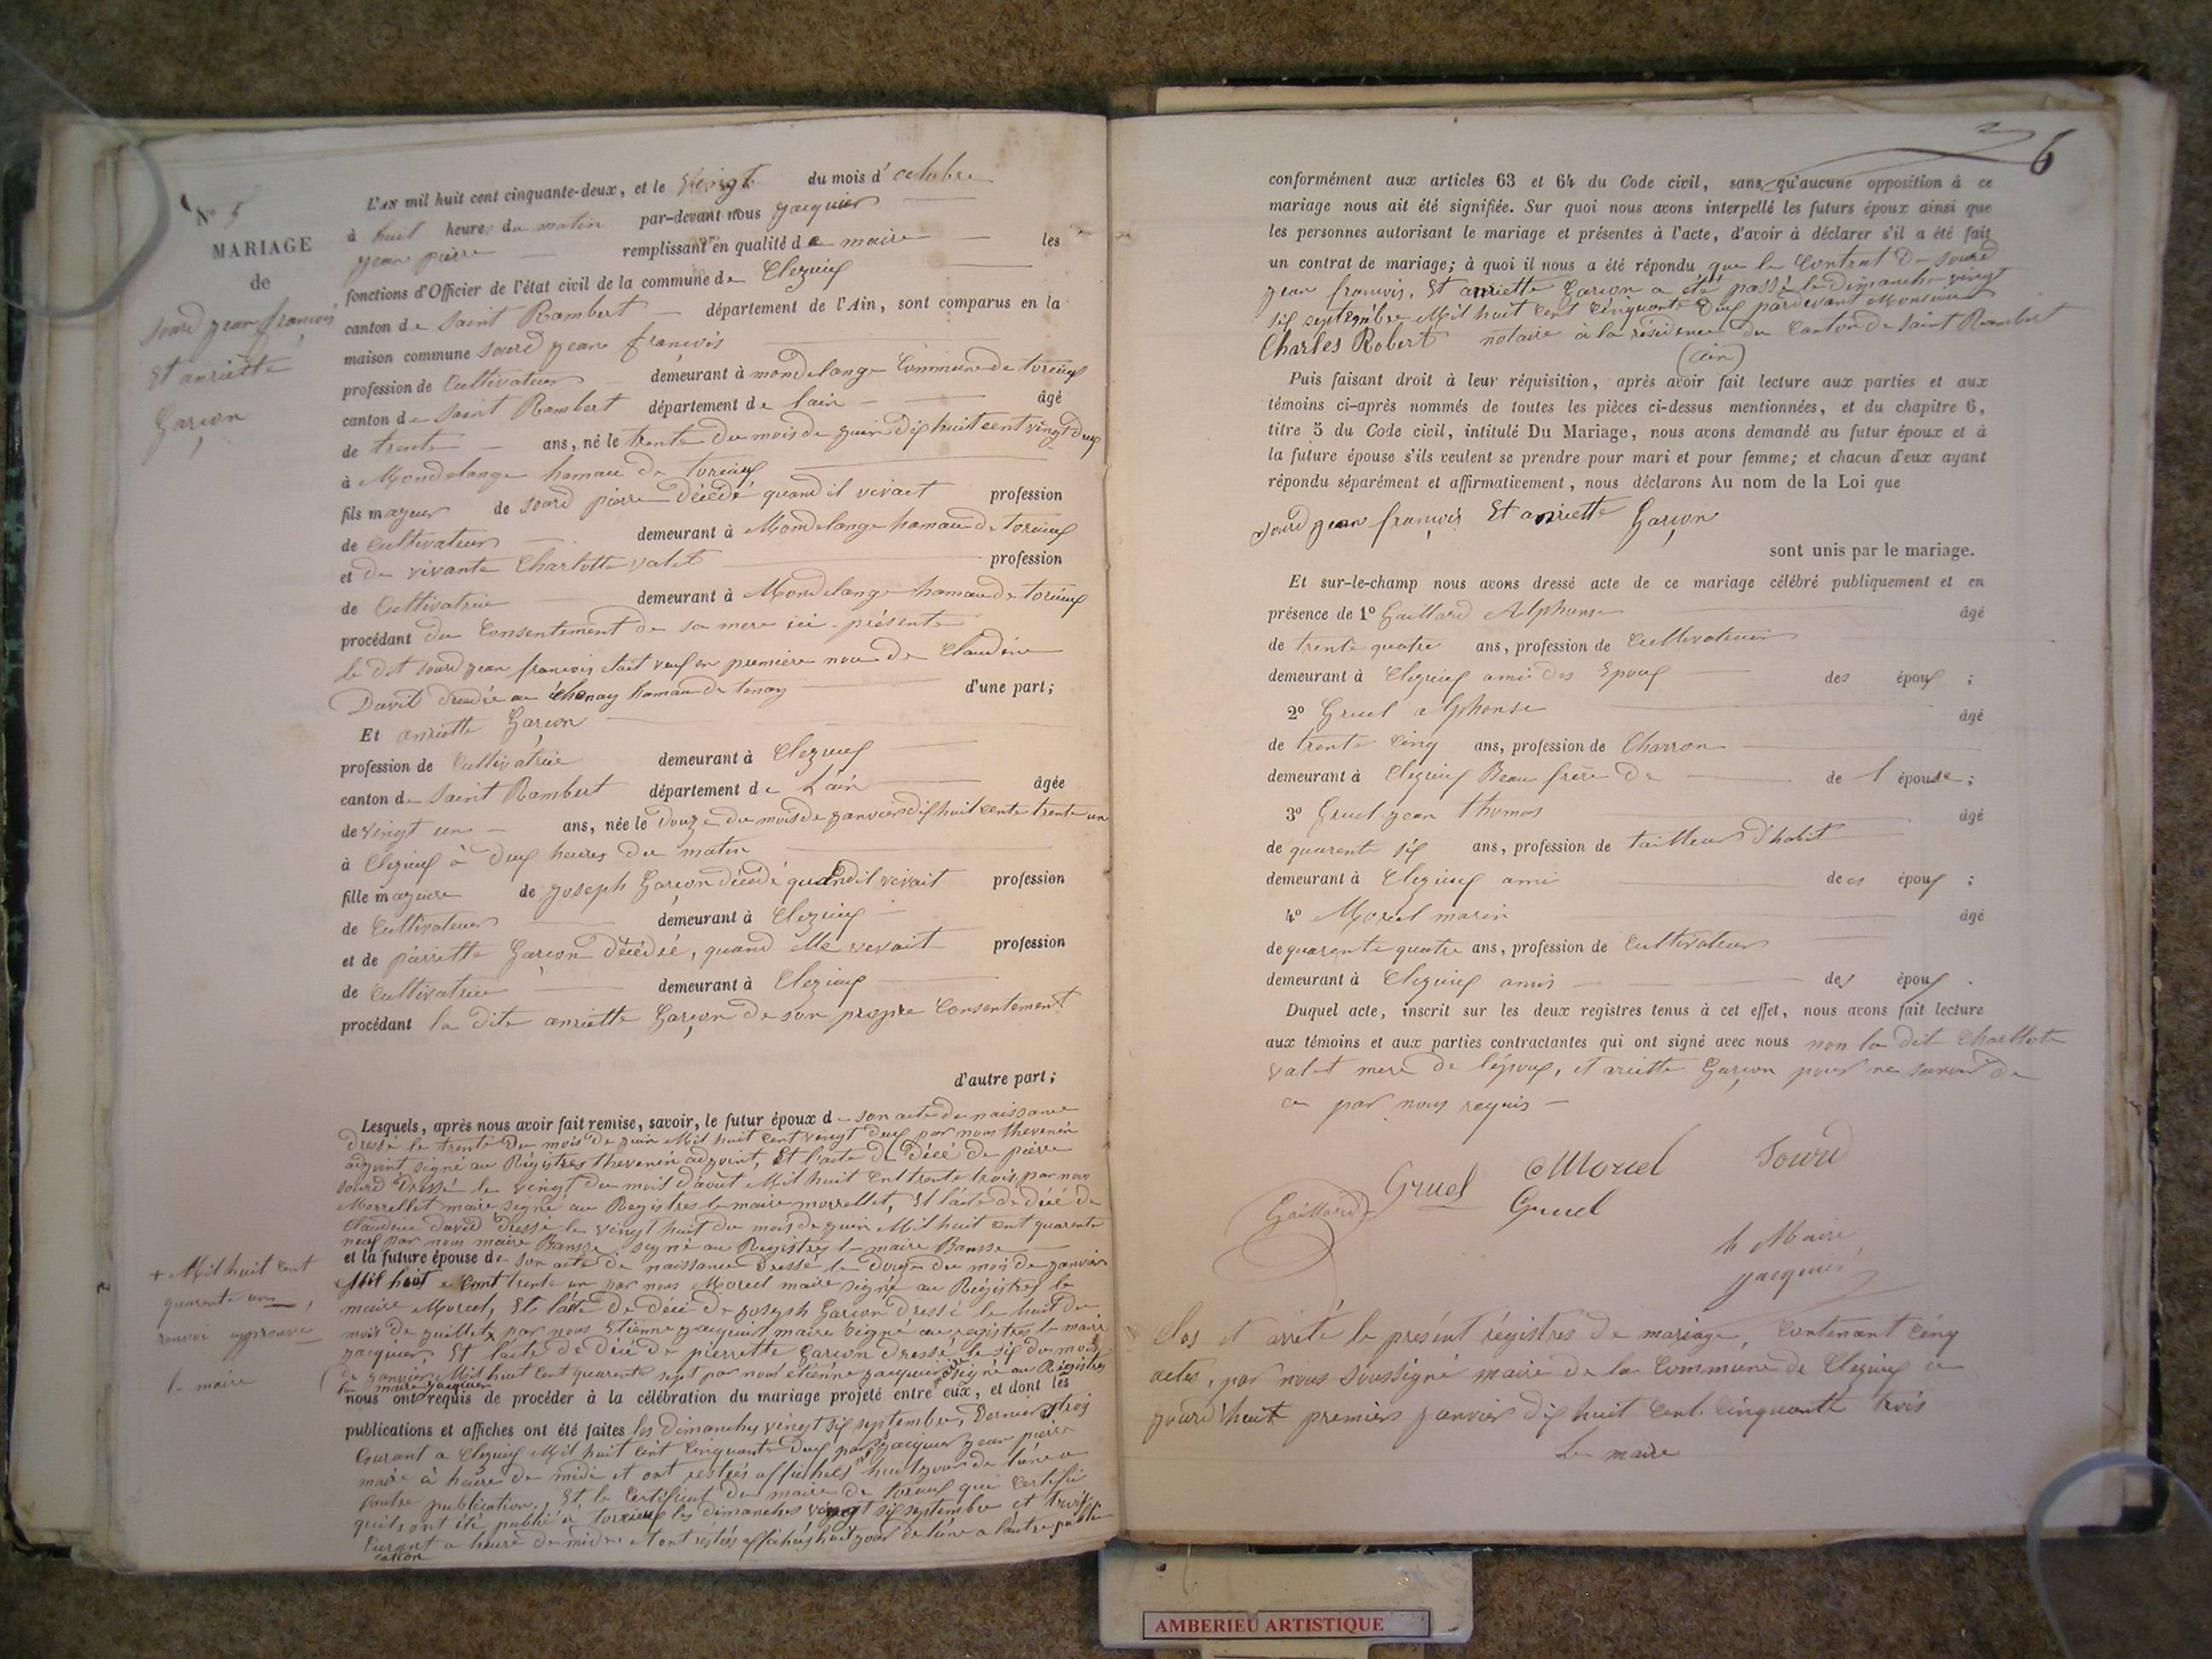 N° 5
MARIAGE
de
Sourd jean françois
Et anriette
Garçon
L'AN mil huit cent cinquante-deux, et le vingt du mois d'octobre
à huit heures du matin par-devant nous jacquier
jean pierre remplissant en qualité de maire les
fonctions d'Officier de l'état civil de la commune de Clezieux
canton de Saint Rambert département de l'Ain, sont comparus en la
maison commune sourd jean françois
profession de Cultivateur demeurant à mondelange Commune de torcieux
canton de Saint Rambert département de lain âgé
de trente ans, né le trente du mois de juin dix huit cent vingt deux
à Mondelange hamau de torcieux
fils mayeur de sourd pierre Décédé quand il vivait profession
de Cultivateur demeurant à Mondelange hamau de torcieux
et de vivante Charlotte valet profession
de Cultivatrice demeurant à Mondelange hamau de torcieux
procédant du Consentement de sa mere ici présente
le dit sourd jean françois etait veuf en premiere noce de Claudine
David décédée au chanay hamau de tenay d'une part;
Et anriette Garçon
profession de Cultivatrice demeurant à Clezieux
canton de Saint Rambert département de L'ain âgée
de vingt un ans, née le Douze du mois de janvier dix huit cente trente un
à Clezieux à deux heures du matin
fille mayeure de joseph Garçon décédé quand il vivait profession
de Cultivateur demeurant à Clezieux
et de pierrette Garçon décédée, quand elle vevait profession
de Cultivatrice demeurant à Clezieux
procédant la dite anriette Garçon de son propre Consentement
d'autre part;
Lesquels, après nous avoir fait remise, savoir, le futur époux de son acte de naissance
dressé le trente du mois de juin Mil huit cent vingt deux par nous thevenin
adjoint signé au Régistres thevenin adjoint, Et l'acte de Décé de pierre
sourd Dressé le vingt du mois d'août Mil huit Cent trente trois par nous
Morrellet maire signé au Registres le maire morrellet, Et l'acte de décé de
Claudine david dressé le vingt huit du mois de juin Mil huit cent quarente
neuf par nous maire Bansse signé au Registres le maire Bansse
et la future épouse de son acte de naissance dressé le Douze du mois de janvier
Mil huit Cent trente un par nous Morel maire signé au Régistres le
maire Morel, Et l'acte de décé de joseph Garçon dressé le huit du
mois de juillet + par nous Etienne jacquier maire signé au registres le maire
jacquier, Et l'acte de décé de pierrette Garçon dressé le six du mois
de janvier Mil huit cent quarente sept par nous étiénne jacquier signé au Régistres
le maire jacquier
+ Mil huit Cent
quarente un,
renvoi approuve
le maire
nous ont requis de procéder à la célébration du mariage projeté entre eux, et dont les
publications et affiches ont été faites les dimanches vingt six septembre, Dernier et trois
Courant a Clezieux Mil huit cent Cinquante deux par jacquier jean pierre
maire à heure de midi et ont restées affichées huit jour de l'une a
l'autre publication, Et le Certificat du maire de torcieux qui Certifie
quils ont été publié à torcieux les dimanches vingt six septembre et trois
Curant a heure de midi et ont restées affichés huit jour de lune a l'autre publi
cation
6
conformément aux articles 63 et 64 du Code civil, sans qu'aucune opposition à ce
mariage nous ait été signifiée. Sur quoi nous avons interpellé les futurs époux ainsi que
les personnes autorisant le mariage et présentes à l'acte, d'avoir à déclarer s'il a été fait
un contrat de mariage; à quoi il nous a été répondu que le Contrat De sourd
jean françois, Et anriette Garçon a été passé le dimanche vingt
six septembre Mil huit Cent Cinquante Deux pardevant Monsieur
Charles Robert notaire à la résidence du Canton de Saint Rambert
(ain)
Puis faisant droit à leur réquisition, après avoir fait lecture aux parties et aux
témoins ci-après nommés de toutes les pièces ci-dessus mentionnées, et du chapitre 6,
titre 5 du Code civil, intitulé Du Mariage, nous avons demandé au futur époux et à
la future épouse s'ils veulent se prendre pour mari et pour femme; et chacun d'eux ayant
répondu séparément et affirmativement, nous déclarons Au nom de la Loi que
Sourd jean françois Et anriette Garçon
sont unis par le mariage.
Et sur-le-champ nous avons dressé acte de ce mariage célébré publiquement et en
présence de 1° Gaillard Alphonse âgé
de trente quatre ans, profession de Cultivateur
demeurant à Clezieux ami des Epoux des époux ;
2° Gruel alphonse âgé
de trente Cinq ans, profession de Charron
demeurant à Clezieux Beau frère de de l'épouse;
3° Gruel jean thomas âgé
de quarente six ans, profession de tailleur d'habit
demeurant à Clezieux ami des époux ;
4° Morel marin âgé
de quarente quatre ans, profession de Cultivateur
demeurant à Clezieux amis des époux .
Duquel acte, inscrit sur les deux registres tenus à cet effet, nous avons fait lecture
aux témoins et aux parties contractantes qui ont signé avec nous non la dit Charllote
valet mere de l'époux, et ariette Garçon pour ne savoir de
ce par nous requis
Gaillard Gruel Morel Sourd
Gruel
le Maire
jacquier
Clos et arrété le présent régistres de mariage, Contenant Cinq
actes, par nous soussigné maire de la Commune de Clezieux ce
jourd'huit premier janvier dix huit Cent Cinquante trois
Le maire
AMBERIEU ARTISTIQUE